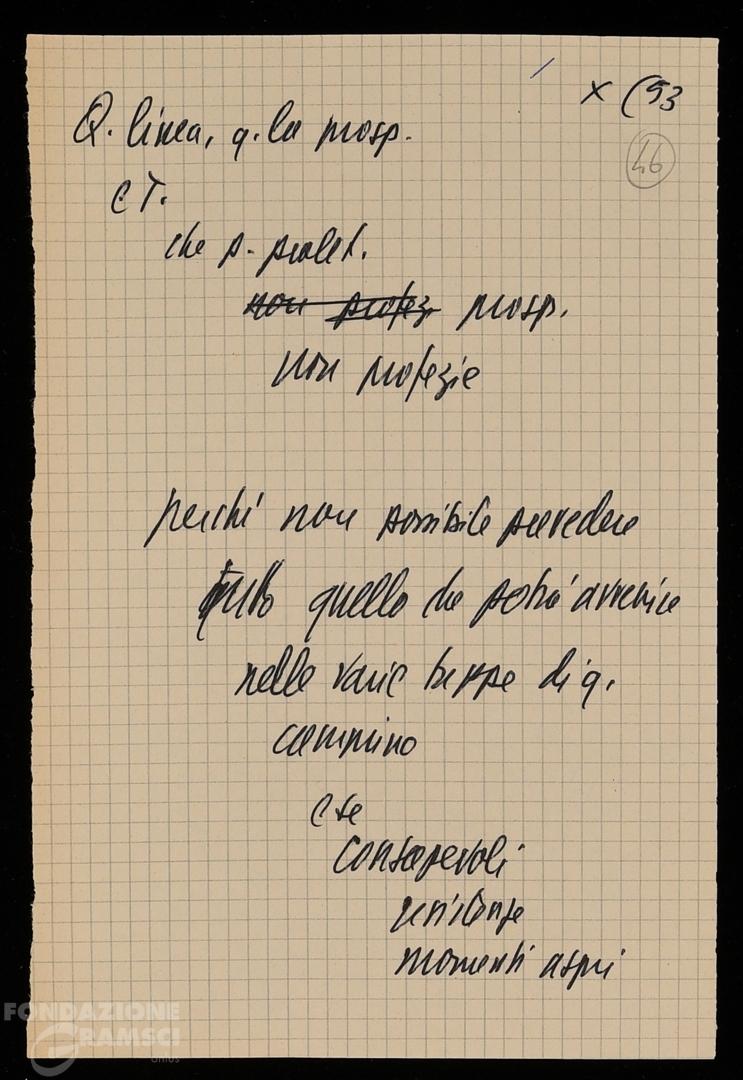 x (93
46
Q. linea, q. la prosp.
e T.
che p. prolet.
non profez. prosp.
non profezie
perché non possibile prevedere
tutto quello che potrà avvenire
nelle varie tappe di q.
cammino
e se
consapevoli
resistenze
momenti aspri
FONDAZIONE
GRAMSCI
onlus